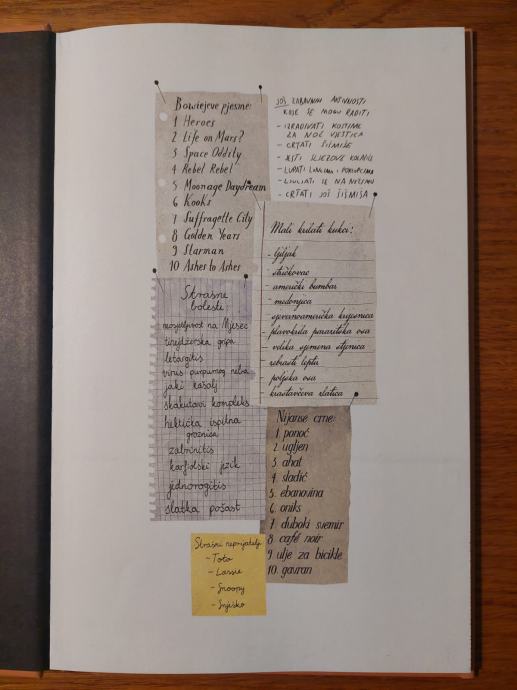 Bowiejeve pjesme:
1 Heroes
2 Life on Mars?
3 Space Oddity
4 Rebel Rebel
5 Moonage Daydream
6 Kooks
7 Suffragette City
8 Golden Years
9 Starman
10 Ashes to Ashes
JOŠ ZABAVNIH AKTIVNOSTI
KOJE SE MOGU RADITI
- IZRAĐIVATI KOSTIME
ZA NOĆ VJEŠTICA
- CRTATI ŠIŠMIŠE
- JESTI SLJEZOVE KOLAČIĆE
- LUPATI LONCIMA I POKLOPCIMA
- LJULJATI SE NA
- CRTATI JOŠ ŠIŠMIŠA
Mali krilati kukci:
- ljiljak
- stričkovac
- američki bumbar
- medonjica
- sjevernoamerička krijesnica
- plavokrila parazitska osa
- velika sjemena stjenica
- rebrasti leptir
- poljska osa
- krastavčeva zlatica
Strašne
bolesti:
mosjetljivost na Mjesec
tinejdžerska gripa
letargitis
virus purpurnog neba
jaki kašalj
skakutavi kompleks
hektička ispitna
groznica
zabrinitis
karfiolski jezik
jednorogitis
slatka pošast
Nijanse crne:
1. ponoć
2. ugljen
3. ahat
4. sladić
5. ebanovina
6. oniks
7. duboki svemir
8. café noir
9. ulje za bicikle
10. gavran
Strašni neprijatelji
- Toto
- Lassie
- Snoopy
- Snješko